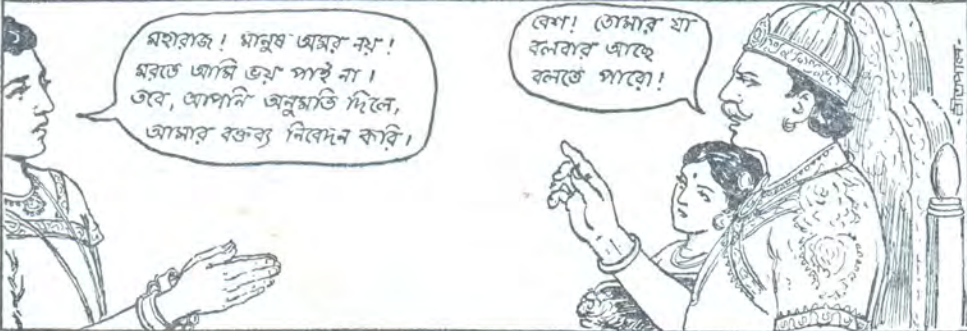 মহারাজ! মানুষ অমর নয়!
মরতে আমি ভয় পাই না।
তবে, আপনি অনুমতি দিলে,
আমার বক্তব্য নিবেদন করি।
বেশ! তোমার যা
বলবার আছে
বলতে পারো!